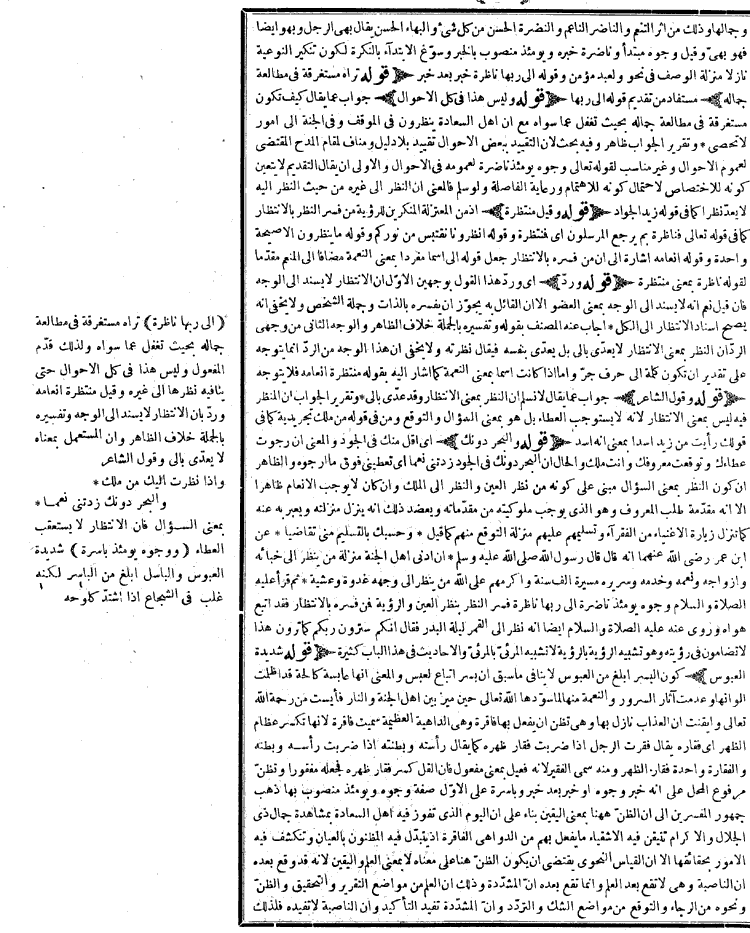 وجمالها وذلك من اثر التنعم والناضر الناعم والنضرة الحسن من كل شئ والبهاء الحسن يقال بهى الرجل وبهو ايضا
فهو بهى وقيل وجوه مبتدأ وناضرة خبره ويومئذ منصوب بالخبر وسوغ الابتدآء بالنكرة لكون تنكير النوعية
نازلا منزلة الوصف فى نحو ولعبد مؤمن وقوله الى ربها ناظرة خبر بعد خبر ﴿ قوله تراه مستغرقة فى مطالعة
جماله ﴾ مستفاد من تقديم قوله الى ربها ﴿ قوله وليس هذا فى كل الاحوال ﴾ جواب عما يقال كيف تكون
مستغرقة فى مطالعة جماله بحيث تغفل عما سواه مع ان اهل السعادة ينظرون فى الموقف وفى الجنة الى امور
لاتحصى * وتقرير الجواب ظاهر وفيه بحث لان التقييد ببعض الاحوال تقييد بلا دليل ومناف لمقام المدح المقتضى
لعموم الاحوال وغير مناسب لقوله تعالى وجوه يومئذ ناضرة لعمومه فى الاحوال والاولى ان يقال التقديم لايتعين
كونه للاختصاص لاحتمال كونه للاهتمام ورعاية الفاصلة ولو سلم فالمعنى ان النظر الى غيره من حيث النظر اليه
لايعد نظرا كما فى قوله زيد الجواد ﴿ قوله وقيل منتظرة ﴾ اذ من المعتزلة المنكرين للرؤية من فسر النظر بالانتظار
كما فى قوله تعالى فناظرة بم يرجع المرسلون اى فمنتظرة وقوله انظرونا نقتبس من نوركم وقوله ما ينظرون الا صيحة
واحدة وقوله انعامه اشارة الى ان من فسره بالانتظار جعل قوله الى اسما مفردا بمعنى النعمة مضافا الى المنعم مقدما
لقوله ناظرة بمعنى منتظرة ﴿ قوله ورد ﴾ اى ورد هذا القول بوجهين الاول ان الانتظار لايسند الى الوجه
فان قيل نعم انه لايسند الى الوجه بمعنى العضو الا ان القائل به يجوز ان يفسره بالذات وجملة الشخص ولايخفى انه
يصح اسناد الانتظار الى الكل * اجاب عنه المصنف بقوله وتفسيره بالجملة خلاف الظاهر والوجه الثانى من وجهى
الرد ان النظر بمعنى الانتظار لايعدى بالى بل يعدى بنفسه فيقال نظرته ولايخفى ان هذا الوجه من الرد انما يتوجه
على تقدير ان تكون كلمة الى حرف جر واما اذا كانت اسما بمعنى النعمة كما اشار اليه بقوله منتظرة انعامه فلا يتوجه
﴿ قوله وقول الشاعر ﴾ جواب عما يقال لانسلم ان النظر بمعنى الانتظار وقد عدى بالى * وتقرير الجواب ان النظر
فيه ليس بمعنى الانتظار لانه لايستوجب العطاء بل هو بمعنى السؤال والتوقع ومن فى قوله من ملك تجريدية كما فى
قولك رأيت من زيد اسدا بمعنى انه اسد ﴿ قوله والبحر دونك ﴾ اى اقل منك فى الجود والمعنى ان رجوت
عطاءك وتوقعت معروفك وانت ملك والحال ان البحر دونك فى الجود زدتنى نعما اى تعطينى فوق ما ارجوه والظاهر
ان كون النظر بمعنى السؤال مبنى على كونه من نظر العين والنظر الى الملك وان كان لايوجب الانعام ظاهرا
الا انه مقدمة طلب المعروف وهو الذى يوجب ملوكيته من مقدماته وبعضد ذلك انه ينزل منزلته ويعبر به عنه
كما تنزل زيارة الاغنياء من الفقرآء وتسليمهم عليهم منزلة التوقع منهم كما قيل * وحسبك بالتسليم منى تقاضيا * عن
ابن عمر رضى الله عنهما انه قال قال رسول الله صلى الله عليه وسلم * ان ادنى اهل الجنة منزلة من ينظر الى خبائه
وازواجه ونعمه وخدمه وسريره مسيرة الف سنة واكرمهم على الله من ينظر الى وجهه غدوة وعشية * ثم قرأ عليه
الصلاة والسلام وجوه يومئذ ناضرة الى ربها ناظرة فسر النظر بنظر العين والرؤية فمن فسره بالانتظار فقد اتبع
هواه وروى عنه عليه الصلاة والسلام ايضا انه نظر الى القمر ليلة البدر فقال انكم سترون ربكم كما ترون هذا
لاتضامون فى رؤيته وهو تشبيه الرؤية بالرؤية لاتشبيه المرئى بالمرئى والاحاديث فى هذا الباب كثيرة ﴿ قوله شديدة
العبوس ﴾ كون البسر ابلغ من العبوس لاينافى ماسبق ان بسر اتباع لعبس والمعنى انها عابسة كالحة قد اظلمت
الوانها وعدمت آثار السرور والنعمة منها لما سودها الله تعالى حين ميز بين اهل الجنة والنار فأيست من رحمة الله
تعالى وايقنت ان العذاب نازل بها وهى تظن ان يفعل بها فاقرة وهى الداهية العظيمة سميت فاقرة لانها تكسر عظام
الظهر اى فقاره يقال فقرت الرجل اذا ضربت فقار ظهره كما يقال رأسته وبطنته اذا ضربت رأسه وبطنه
والفقارة واحدة فقار الظهر ومنه سمى الفقير لانه فعيل بمعنى مفعول فان القل كسر فقار ظهره فجعله مفقورا وتظن
مرفوع المحل على انه خبر وجوه او خبر بعد خبر وباسرة على الاول صفة وجوه ويومئذ منصوب بها ذهب
جمهور المفسرين الى ان الظن ههنا بمعنى اليقين بناء على ان اليوم الذى تفوز فيه اهل السعادة بمشاهدة جمال ذى
الجلال والاكرام تتيقن فيه الاشقياء ما يفعل بهم من الدواهى الفاقرة اذ يتبدل فيه المظنون بالعيان وتنكشف فيه
الامور بحقائقها الا ان القياس النحوى يقتضى ان يكون الظن هنا على معناه لا بمعنى العلم واليقين لانه قد وقع بعده
ان الناصبة وهى لاتقع بعد العلم وانما تقع بعده ان المشددة وذلك ان العلم من مواضع التقرير والتحقيق والظن
ونحوه من الرجاء والتوقع من مواضع الشك والتردد وان المشددة تفيد التأكيد وان الناصبة لاتفيده فلذلك
(الى ربها ناظرة) تراه مستغرقة فى مطالعة
جماله بحيث تغفل عما سواه ولذلك قدم
المفعول وليس هذا فى كل الاحوال حتى
ينافيه نظرها الى غيره وقيل منتظرة انعامه
ورد بان الانتظار لايسند الى الوجه وتفسيره
بالجملة خلاف الظاهر وان المستعمل بمعناه
لايعدى بالى وقول الشاعر
واذا نظرت اليك من ملك *
والبحر دونك زدتنى نعما *
بمعنى السؤال فان الانتظار لايستعقب
العطاء (ووجوه يومئذ باسرة) شديدة
العبوس والباسل ابلغ من الباسر لكنه
غلب فى الشجاع اذا اشتد كلوحه